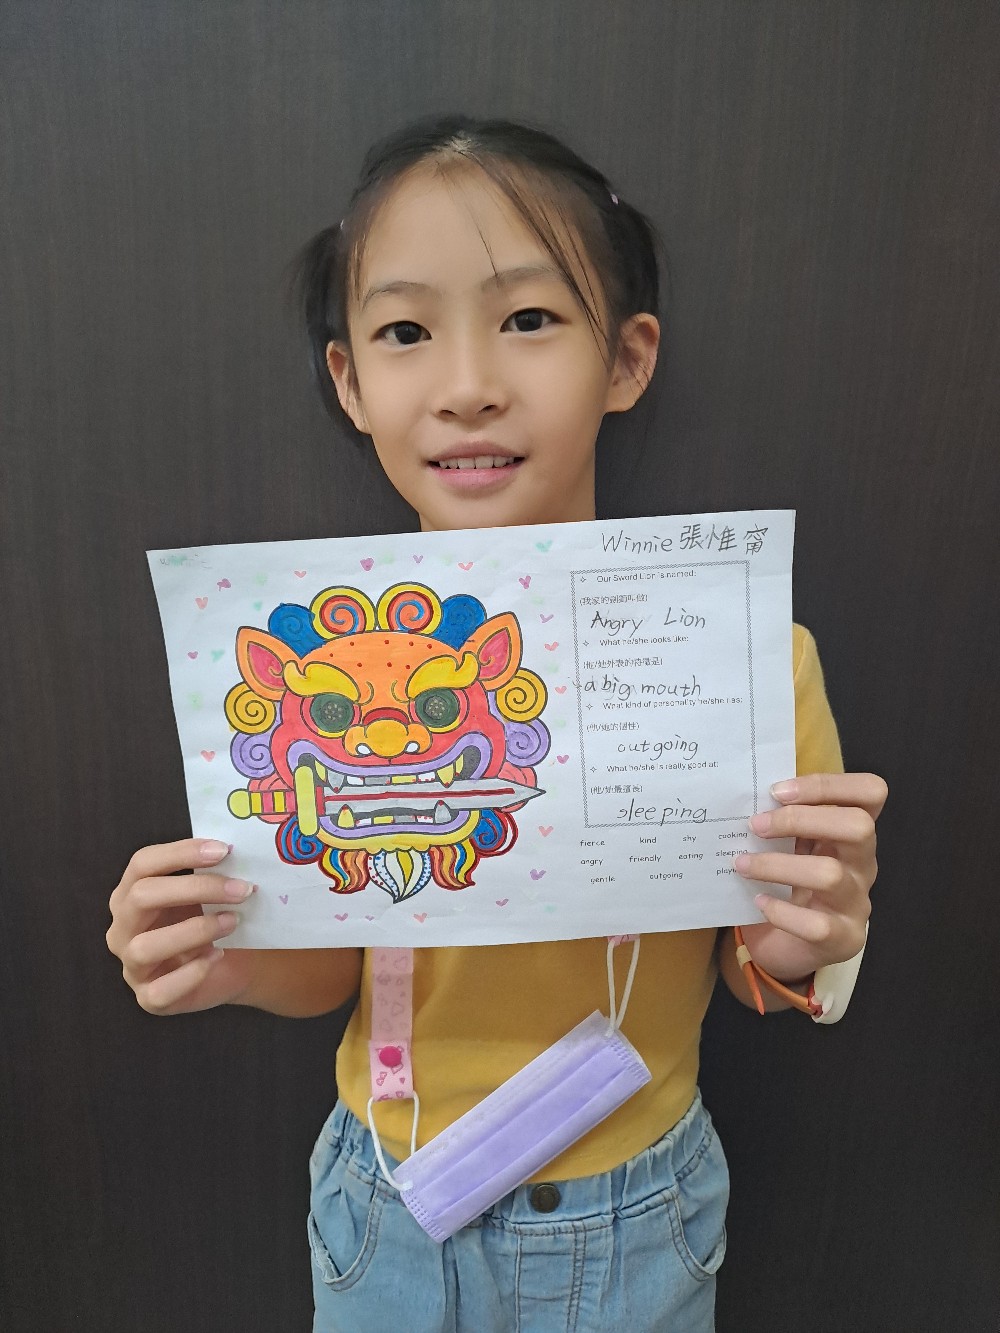 Winnie 張惟甯
✧ Our Sword Lion is named:
(我家的劍獅叫做)
Angry Lion
✧ What he/she looks like:
(他/她外表的特徵是)
a big mouth
✧ What kind of personality he/she has:
(他/她的個性)
outgoing
✧ What he/she is really good at:
(他/她最擅長)
sleeping
fierce kind shy cooking
angry friendly eating sleeping
gentle outgoing